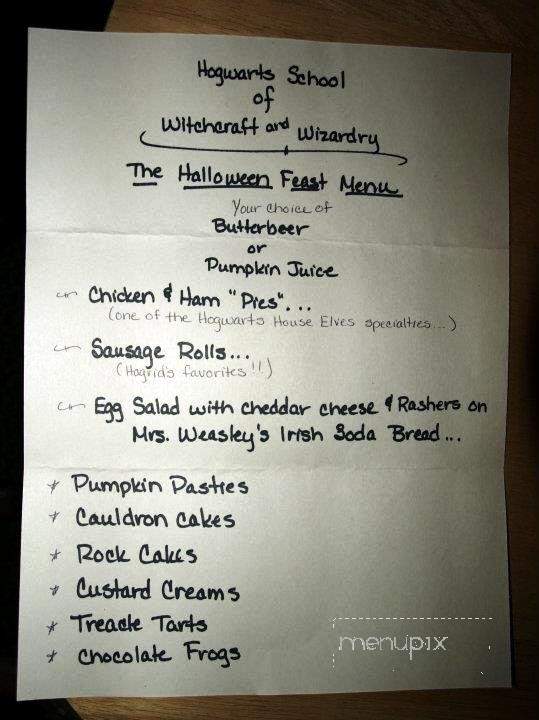 Hogwarts School
of
Witchcraft and Wizardry
The Halloween Feast Menu
Your choice of
Butterbeer
or
Pumpkin Juice
Chicken & Ham "Pies"...
(one of the Hogwarts House Elves specialties...)
Sausage Rolls...
(Hagrid's favorites!!)
Egg Salad with cheddar cheese & Rashers on
Mrs. Weasley's Irish Soda Bread...
* Pumpkin Pasties
* Cauldron Cakes
* Rock Cakes
* Custard Creams
* Treacle Tarts
* Chocolate Frogs
menupix